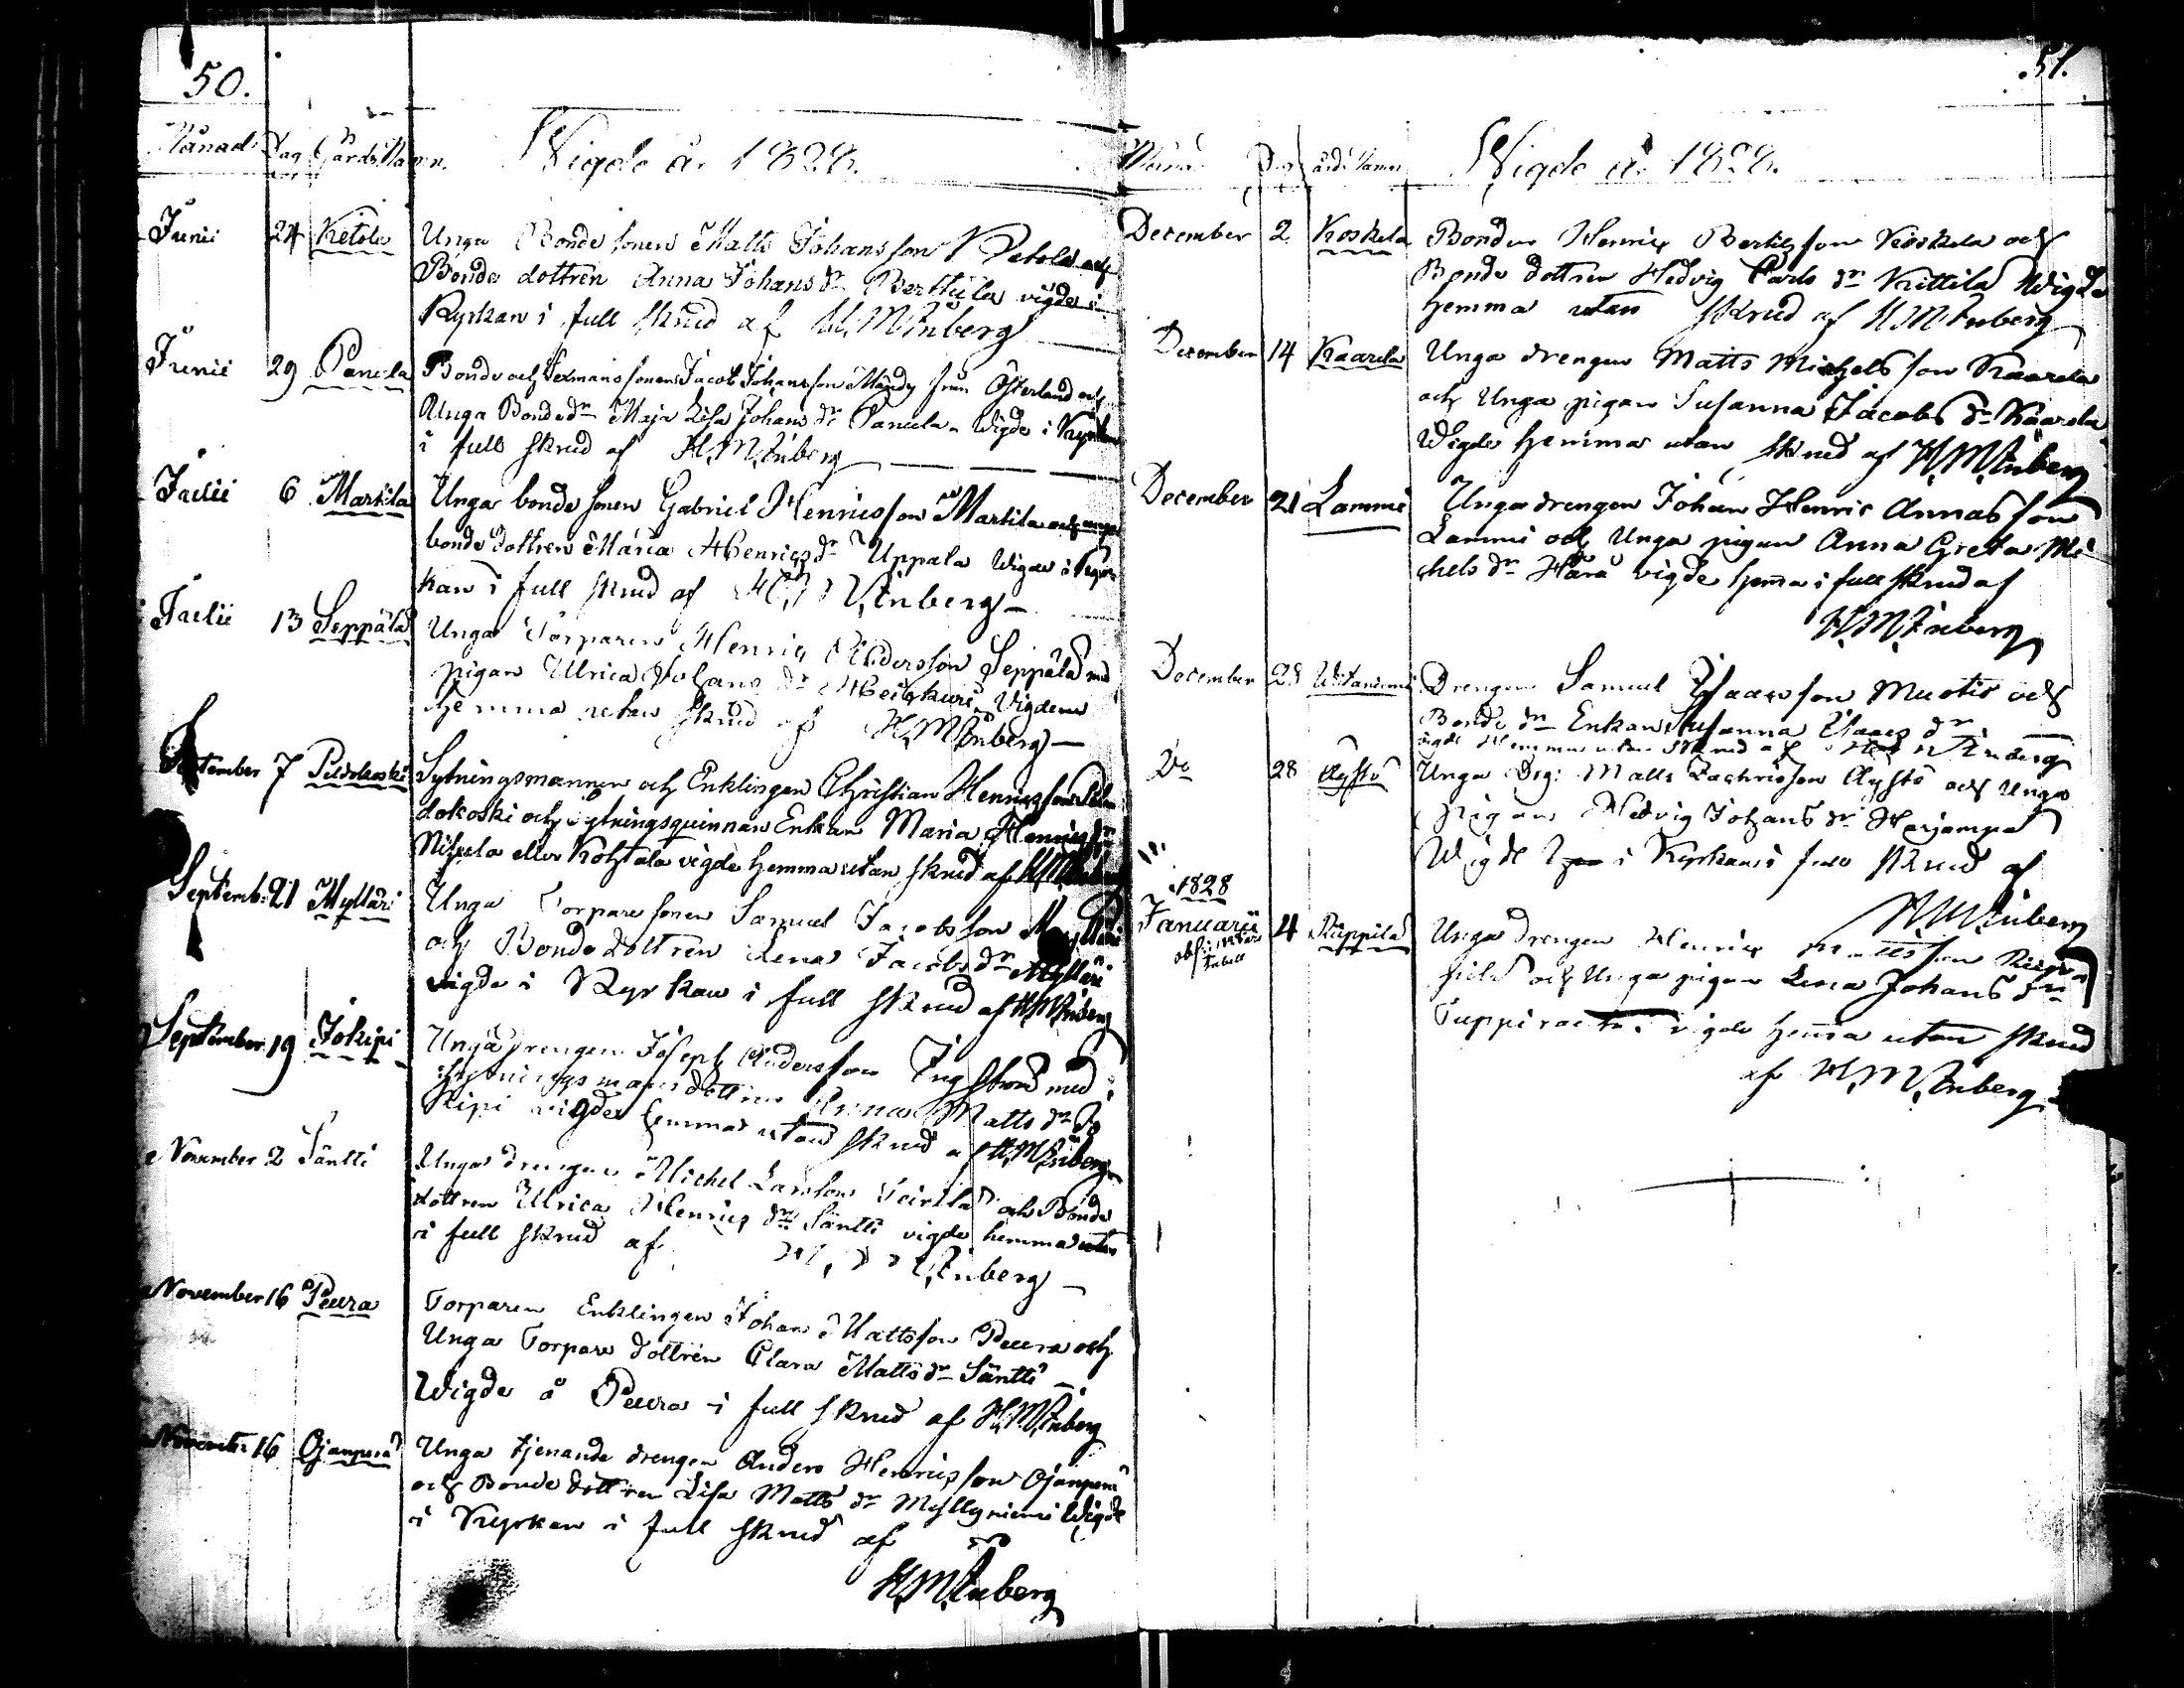 50.
Månad Dag Gårds Namn. Wigde år 1828.
Junii 24 Ketola Unga Bonde sonen Matts Johansson Ketola och
Bonde dottren Anna Johans dr Berttula vigde i
Kyrkan i full skrud af H. M. Inberg
Junii 29 Panula Bonde och Sexmans sonen Jacob Johansson Mändy från Österland och
Unga Bonde dr Maja Lisa Johans dr Panula. Wigde i Kyrkan
i full skrud af H. M. Inberg
Julii 6 Martila Unga bonde sonen Gabriel Henricsson Martila och unga
bonde dottren Maria Henrics dr Uppala Wigde i Kyr
kan i full skrud af Inberg
Julii 13 Seppälä Unga Torparen Henric Andersson Seppälä med
pigan Ulrica Johans dr Vigdene
hemma utan skrud af H. M. Inberg
September 7 Peldokoski Sytningsmannen och Enklingen Christian Henricsson Pel
dokoski och Sytningsquinnan Enkan Maria Henrics dr
eller Kohtala vigde hemma utan skrud af H M Inberg
Septemb. 21 Mylläri Unga Torpare sonen Samuel Jacobsson Mylläri
och Bonde dottren Lena Jacobs dr Mylläri
vigde i Kyrkan i full skrud af H. M. Inberg
September 19 Jokipi Unga drengen Joseph Andersson med
Sytningsmans dottren Anna Matts dr Jo
kipi vigde hemma utan skrud af H. M. Inberg
November 2 Säntti Unga drengen Michel Larsson och Bonde
dottren Ulrica Henrics dr Säntti vigde hemma utan
i full skrud af Inberg
November 16 Peura Torparen Enklingen Johan Mattsson Peura och
Unga Torpare dottren Clara Matts dr Säntti
Wigde å Peura i full skrud af H. M. Inberg
November 16 Ojanperä Unga tjenande drengen Anders Henricsson Ojanperä
och Bonde dottren Lisa Matts dr Myllyniemi Wigde
i Kyrkan i full skrud af
H. M. Inberg
51.
Månad Dag Gårds Namn Wigde år 1828.
December 2 Koskela Bonden Henric Bertilsson Koskela och
Bonde dottren Hedvig Carls dr Kittila Wigde
hemma utan skrud af H. M. Inberg
December 14 Kaarela Unga drengen Matts Michelsson Kaarela
och Unga pigan Susanna Jacobs dr Kaarela
Wigde hemma utan skrud af H. M. Inberg
December 21 Lammi Unga drengen Johan Henric Annasson
Lammi och Unga pigan Anna Greta Mi
chels dr Harä vigde hema i full skrud af
H. M. Inberg
December 28 Drengen Samuel Isaacsson och
Bonde dr Enkan Susanna Isaacs dr
vigde hemma utan skrud af Inberg
Do 28 Äystö Unga Drg: Matts Zachrisson Äystö och Unga
Pigan Hedvig Johans dr Harjanpä
Wigde i Kyrkan i full skrud af
H. M. Inberg
1828
Januarii 4 Unga drengen Henric Mattsson
och Unga pigan Lena Johans dr
vigde hema utan skrud
af H. M. Inberg